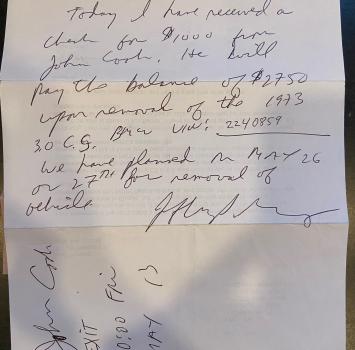 Today I have received a
check for $1000 from
John Cook. He will
pay the balance of $2750
upon removal of the 1973
3.0 C.S. BMW VIN: 2240859
We have planned on MAY 26
or 27TH for removal of
vehicle
John Cook
EXIT
0:00 Fri
MAY 13